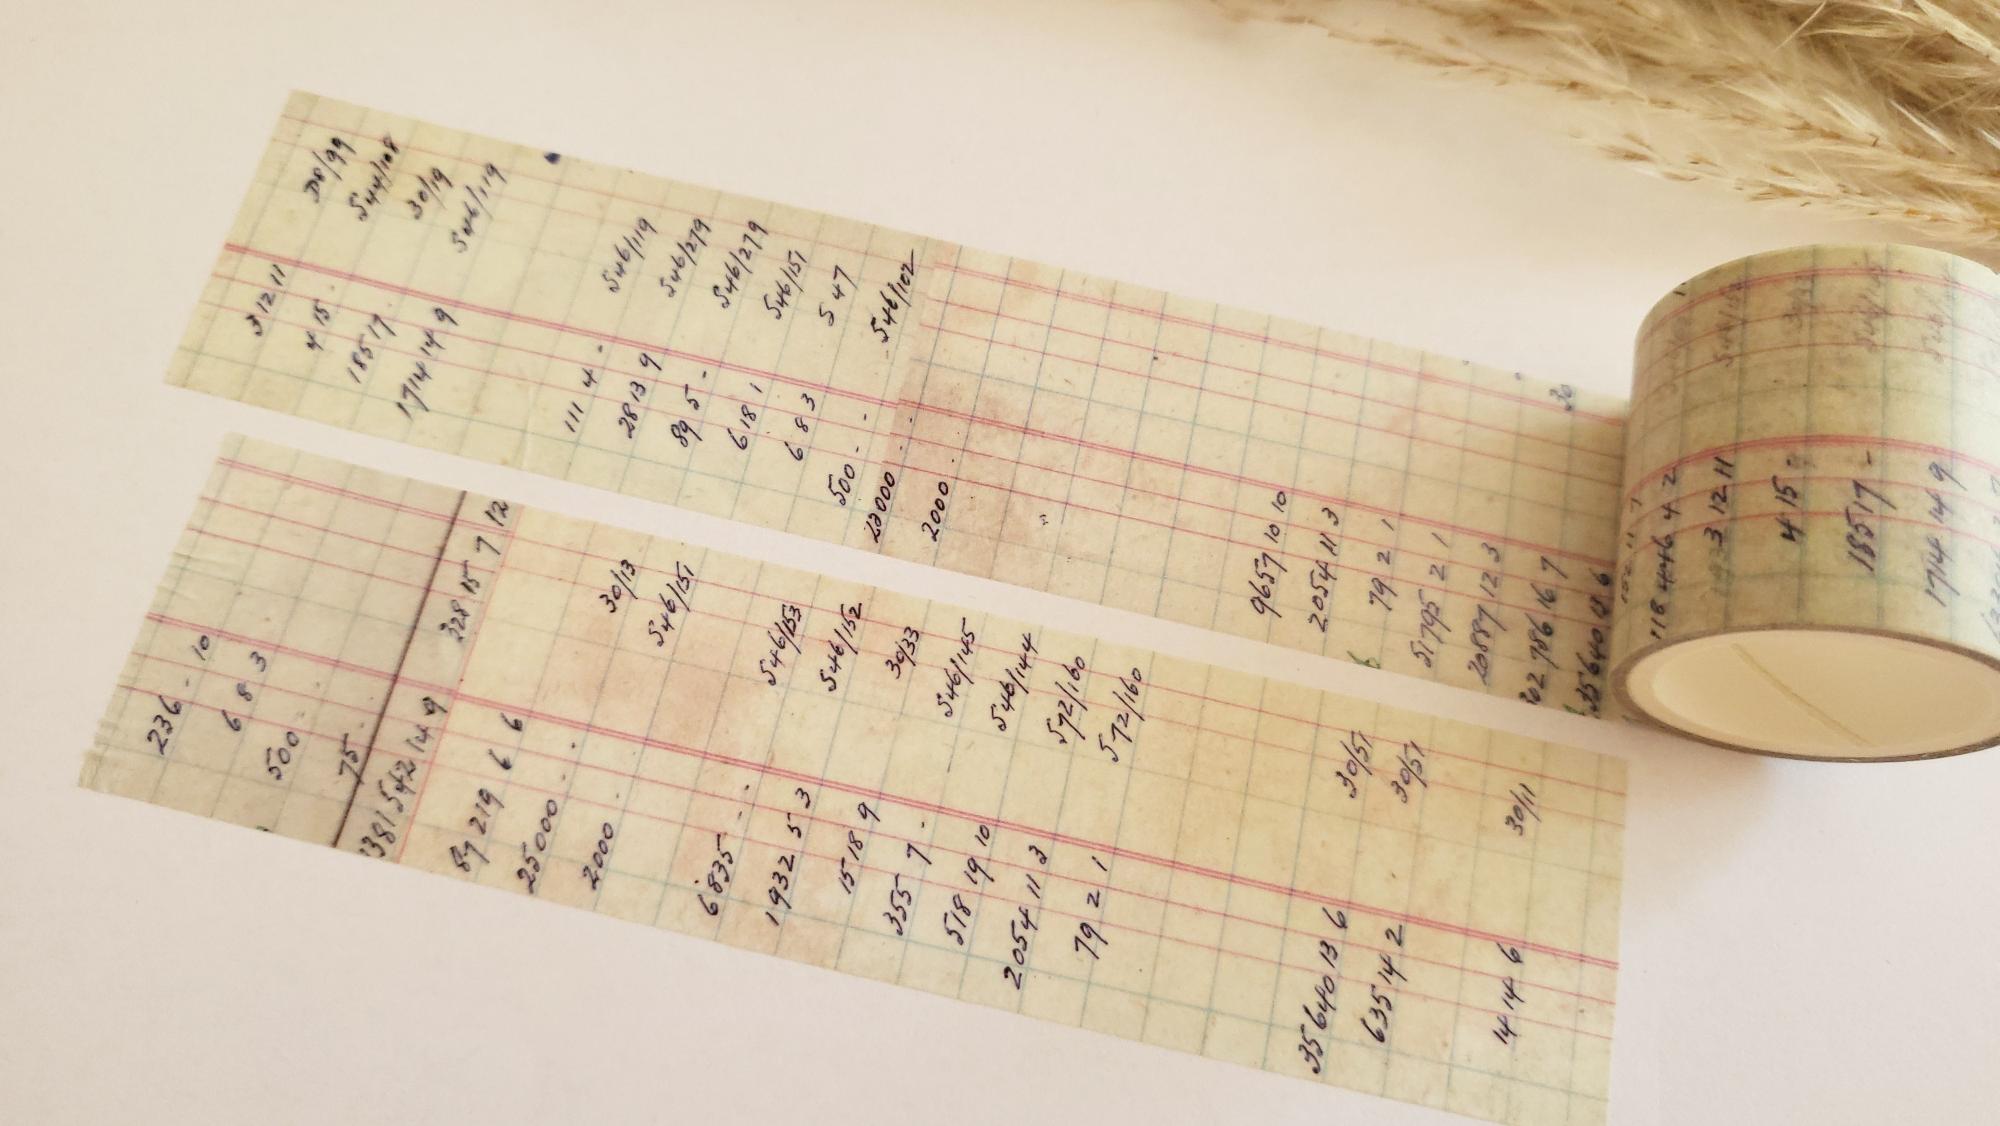 38/99
544/108
30/19
546/119
3 12 11
4 15
185 17
1714 14 9
546/119
546/279
546/279
546/151
547
546/102
111 4 -
28 13 9
89 5 -
6 18 1
6 8 3
500 - -
22000 . .
2000 .
9657 10 10
2054 11 3
79 2 1
51795 2 1
20887 12 3
302786 16 7
35640 13 6
30
118 446 4 2
3 12 11
4 15 9
185 17 -
1714 14 9
236 - 10
6 8 3
500
75
328 15 7 12
381542 14 9
89219 6 6
25000 . .
2000
30/13
546/151
546/153
546/152
30/33
546/145
546/144
572/160
572/160
6835 - -
1932 5 3
15 18 9
355 7 -
518 19 10
2054 11 3
79 2 1
30/51
30/51
30/11
35640 13 6
635 14 2
14 14 6